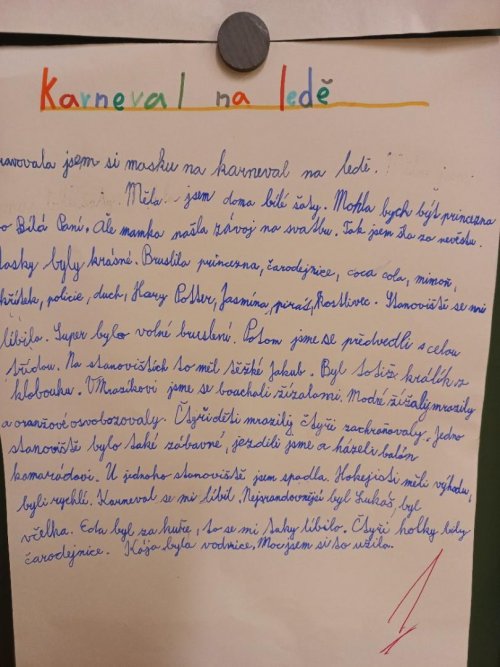 Karneval na ledě
ravovala jsem si masku na karneval na ledě.
Měla jsem doma bílé šaty. Mohla bych být princezna
o Bílá Paní. Ale mamka našla závoj na svatbu. Tak jsem šla za nevěstu.
asky byly krásné. Bruslila princezna, čarodejnice, coca cola, mimoň,
křítek, policie, duch, Harry Potter, Jasmína, pirát, Rostlivec. Stanoviště se mi
líbila. Super bylo volné bruslení. Potom jsme se předvedli s celou
třídou. Na stanovištích to měl těžké Jakub. Byl totiž králík z
klobouka. V Mrazíkovi jsme se boachali žížalami. Modré žížaly mrazily
a oranžové osvobozovaly. Čtyři děti mrazily čtyři zachraňovaly. Jedno
stanoviště bylo také zábavné, jezdili jsme a házeli balón
kamarádovi. U jednoho stanoviště jsem spadla Hokejisti měli výhodu,
byli rychlí. Karneval se mi líbil. Nejsrandovnější byl Lukáš, byl
včelka. Eda byl za kuře, to se mi taky líbilo. Čtyři holky byly
čarodejnice. Kája byla vodnice. Moc jsem si to užila.
1